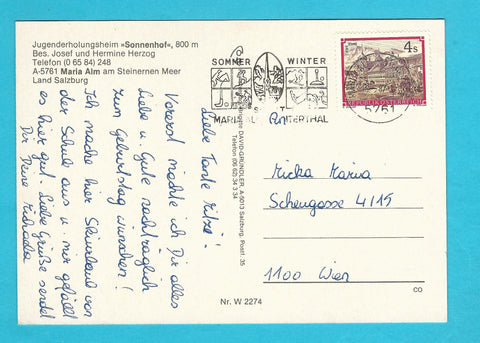 Jugenderholungsheim »Sonnenhof«, 800 m
Bes. Josef und Hermine Herzog
Telefon (0 65 84) 248
A-5761 Maria Alm am Steinernen Meer
Land Salzburg
Liebe Tante Mitzi!
Vorerst möchte ich Dir alles
Liebe u. Gute nachträglich
zum Geburtstag wünschen!
Ich mache hier Skiurlaub von
der Schule aus u. mir gefällt
es hier gut. Liebe Grüße sendet
Dir Deine Michaela
DAVID-GRÜNDLER, A-5013 Salzburg, Postf. 35
Telefon (06 62) 34 3 34
Nr. W 2274
SOMMER WINTER
MARIA HINTERTHAL
4 S
REPUBLIK ÖSTERREICH
5761
An
Micka Maria
Scheugasse 4/15
1100 Wien
CO